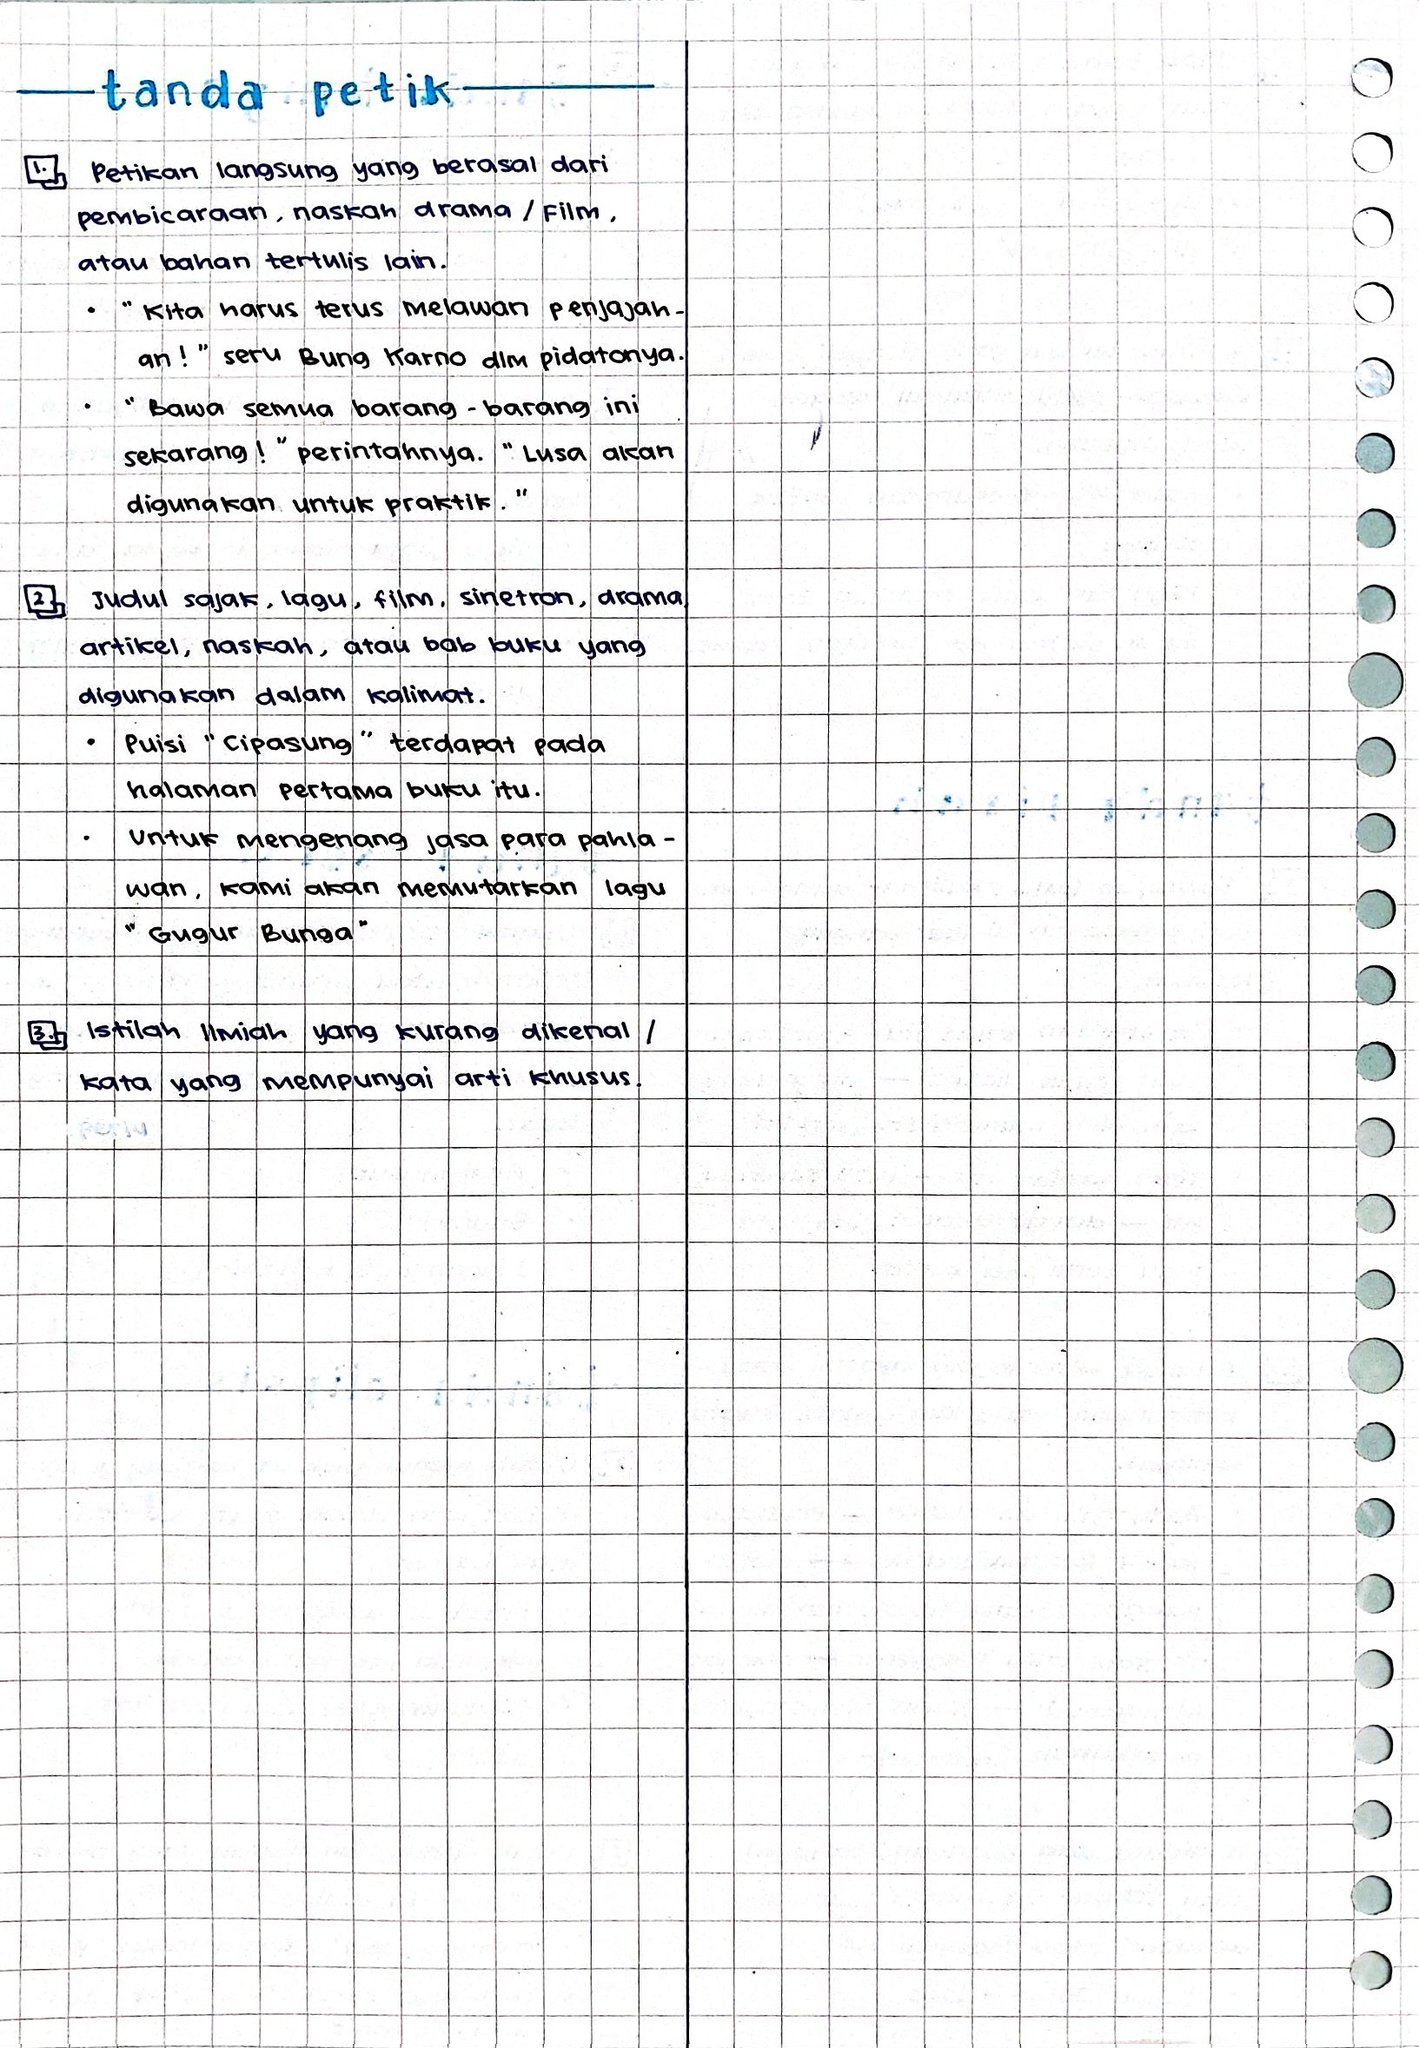 tanda petik
1. Petikan langsung yang berasal dari
pembicaraan, naskah drama / Film,
atau bahan tertulis lain.
• "Kita harus terus melawan penjajah-
an!" seru Bung Karno dlm pidatonya.
• "Bawa semua barang-barang ini
sekarang!" perintahnya. "Lusa akan
digunakan untuk praktik."
2. Judul sajak, lagu, film, sinetron, drama,
artikel, naskah, atau bab buku yang
digunakan dalam kalimat.
• Puisi "Cipasung" terdapat pada
halaman pertama buku itu.
• Untuk mengenang jasa para pahla-
wan, kami akan memutarkan lagu
"Gugur Bunga"
3. Istilah Ilmiah yang kurang dikenal /
kata yang mempunyai arti khusus.